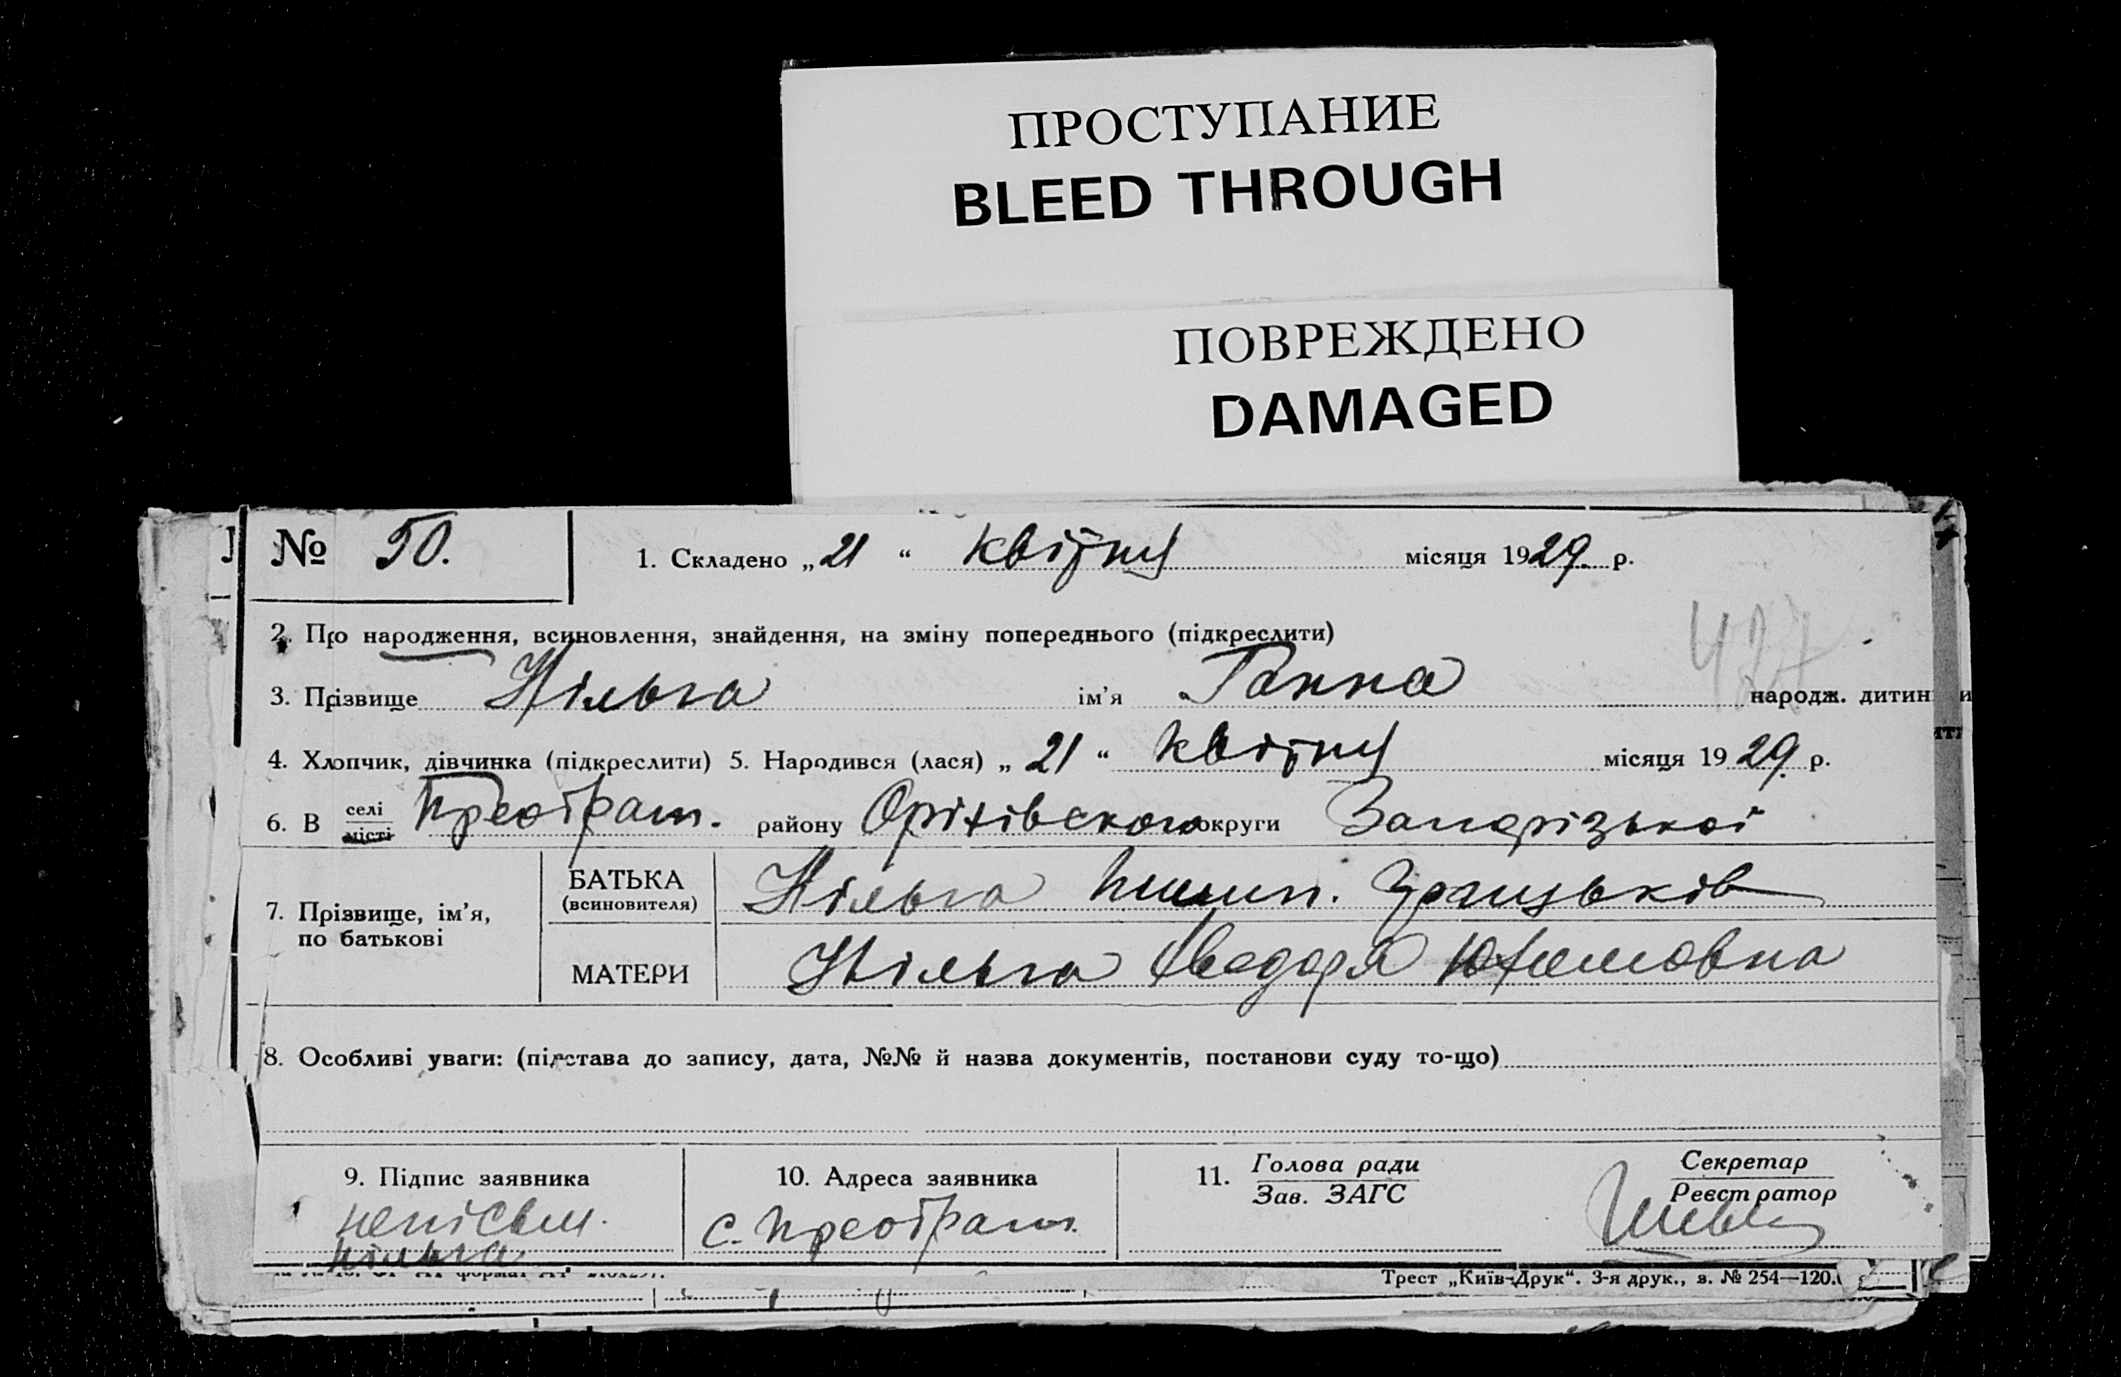 ПРОСТУПАНИЕ
BLEED THROUGH
ПОВРЕЖДЕНО
DAMAGED
№ 50. 1. Складено „21“ Квітня місяця 1929. р.
2. Про народження, всиновлення, знайдення, на зміну попереднього (підкреслити)
477
3. Прізвище Кільга ім’я Ганна народж. дитини
4. Хлопчик, дівчинка (підкреслити) 5. Народився (лася) „21“ Квітня місяця 1929. р.
6. В селі місті Преображ. району Оріхівского округи Запорізької
7. Прізвище, ім’я, по батькові
БАТЬКА (всиновителя) Кільга Пилип. Грицьків
МАТЕРИ Кільга Федора Юхимовна
8. Особливі уваги: (підстава до запису, дата, №№ й назва документів, постанови суду то-що)
9. Підпис заявника 10. Адреса заявника 11. Голова ради Зав. ЗАГС Секретар Реєстратор
неписьм. с. Преображ.
Кільга
Трест „Київ-Друк“. 3-я друк., з. № 254—120.